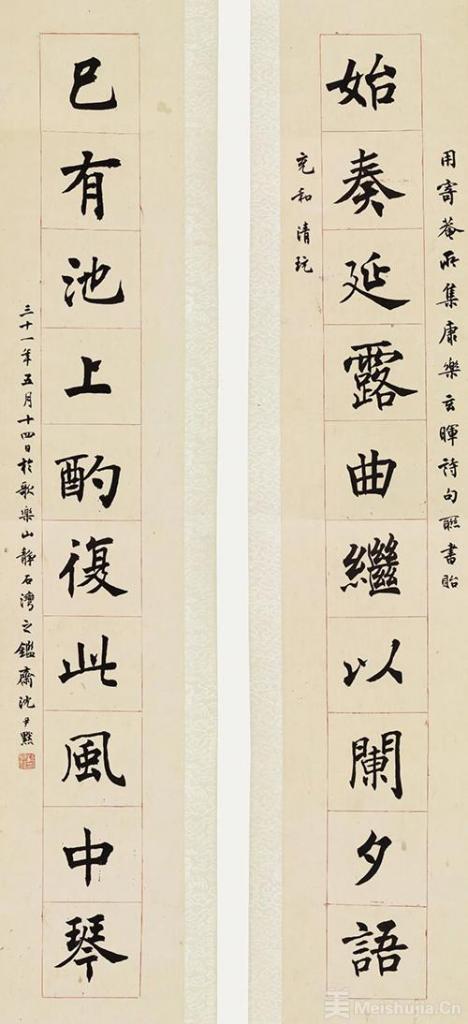 用寄菴所集康樂玄暉詩句聯書貽
始奏延露曲繼以闌夕語
充和清玩
已有池上酌復此風中琴
三十一年五月十四日於歌樂山靜石灣之鑑齋沈尹默
美 Meishujia.Cn